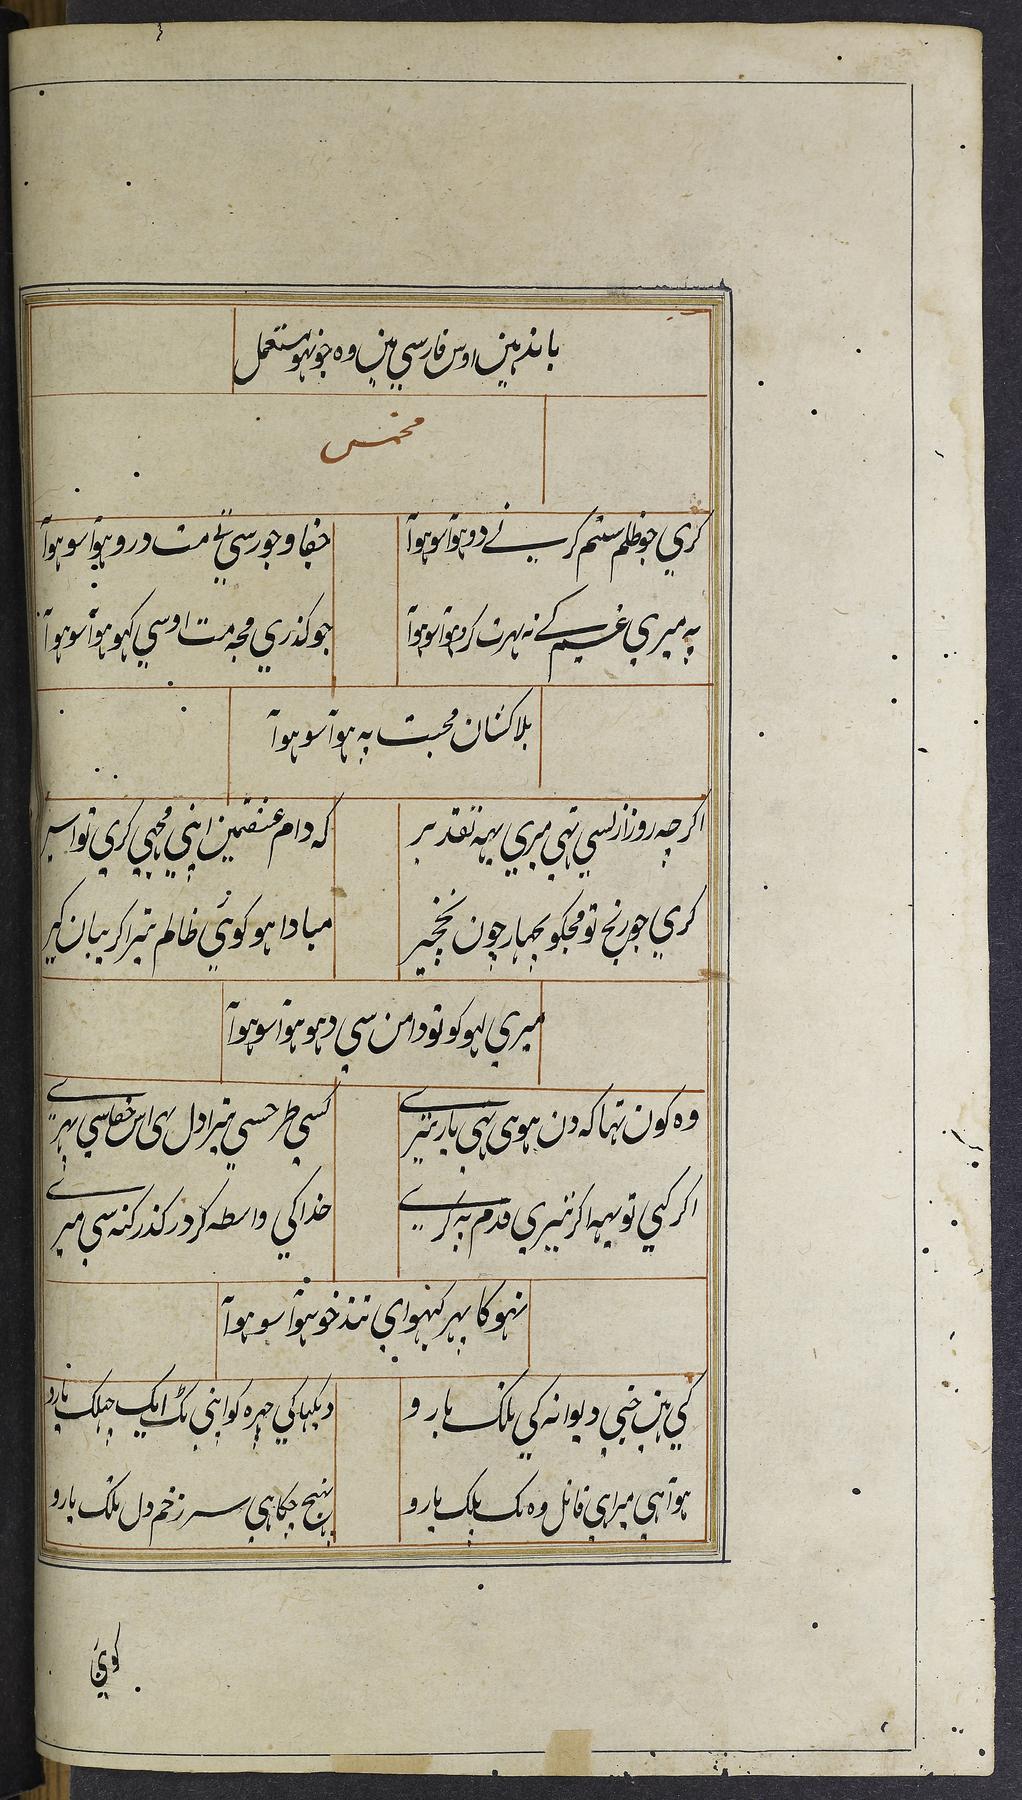 باندہین اوس فارسي مین وہ جو نہو مستعمل
مخمس
کري جو ظلم ستم کرنے دو ہوآ سو ہوآ
جفا و جور سي مت درو ہوآ سو ہوآ
پہ میري غم کے نہ شہرت کرو ہوآ سو ہوآ
جو کذري مجہ مت اوسي کہو ہوآ سو ہوآ
بلا کشان محبت پہ ہوآ سو ہوآ
اکر چہ روز ازلسي تہي میري یہہ تقدیر
کہ دام عشقمین اپني مجہي کري تو اسیر
کري جو رنج تو مجکو بچہار چون نخچیر
مبادا ہو کوئي ظالم تیرا کریبان کیر
میري لہو کو تو دامن سي دہو ہوآ سو ہوآ
وہ کون تہا کہ دن ہوي نہي یار تیرے
کسي طرحسي تیرا دل اس جفاسي پہرے
اکر کہي تو یہہ اکر تیري قدم پہ کرے
خدا کي واسطہ کر درکذر کنہ سي میرے
نہو کا پہر کنہو اي تند خو ہوآ سو ہوآ
کي ہین جني دیوانہ کي ملک یارو
دیکہا کي چہرہ کو اپني ٹک ایک جہلک یارو
ہوآ ہي میراہي قاتل وہ یک بلک یارو
پہنچ چکا ہي سر زخم دل تلک یارو
کوئي